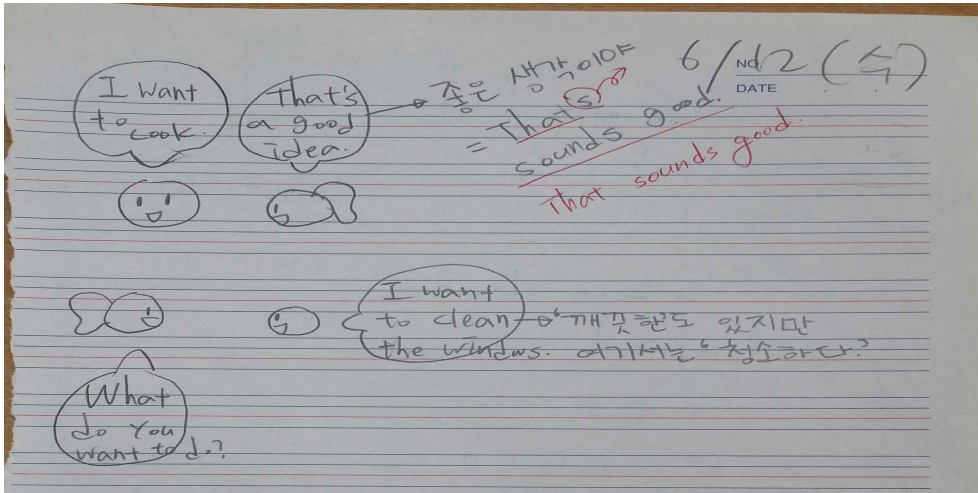 6/12 (수)
NO.
DATE
I want
to cook.
That's
a good
idea.
좋은 생각이야
= That(s)
sounds good.
That sounds good.
I want
to clean
the windws.
'깨끗한'도 있지만
여기서는 '청소하다.'
What
do you
want to do?